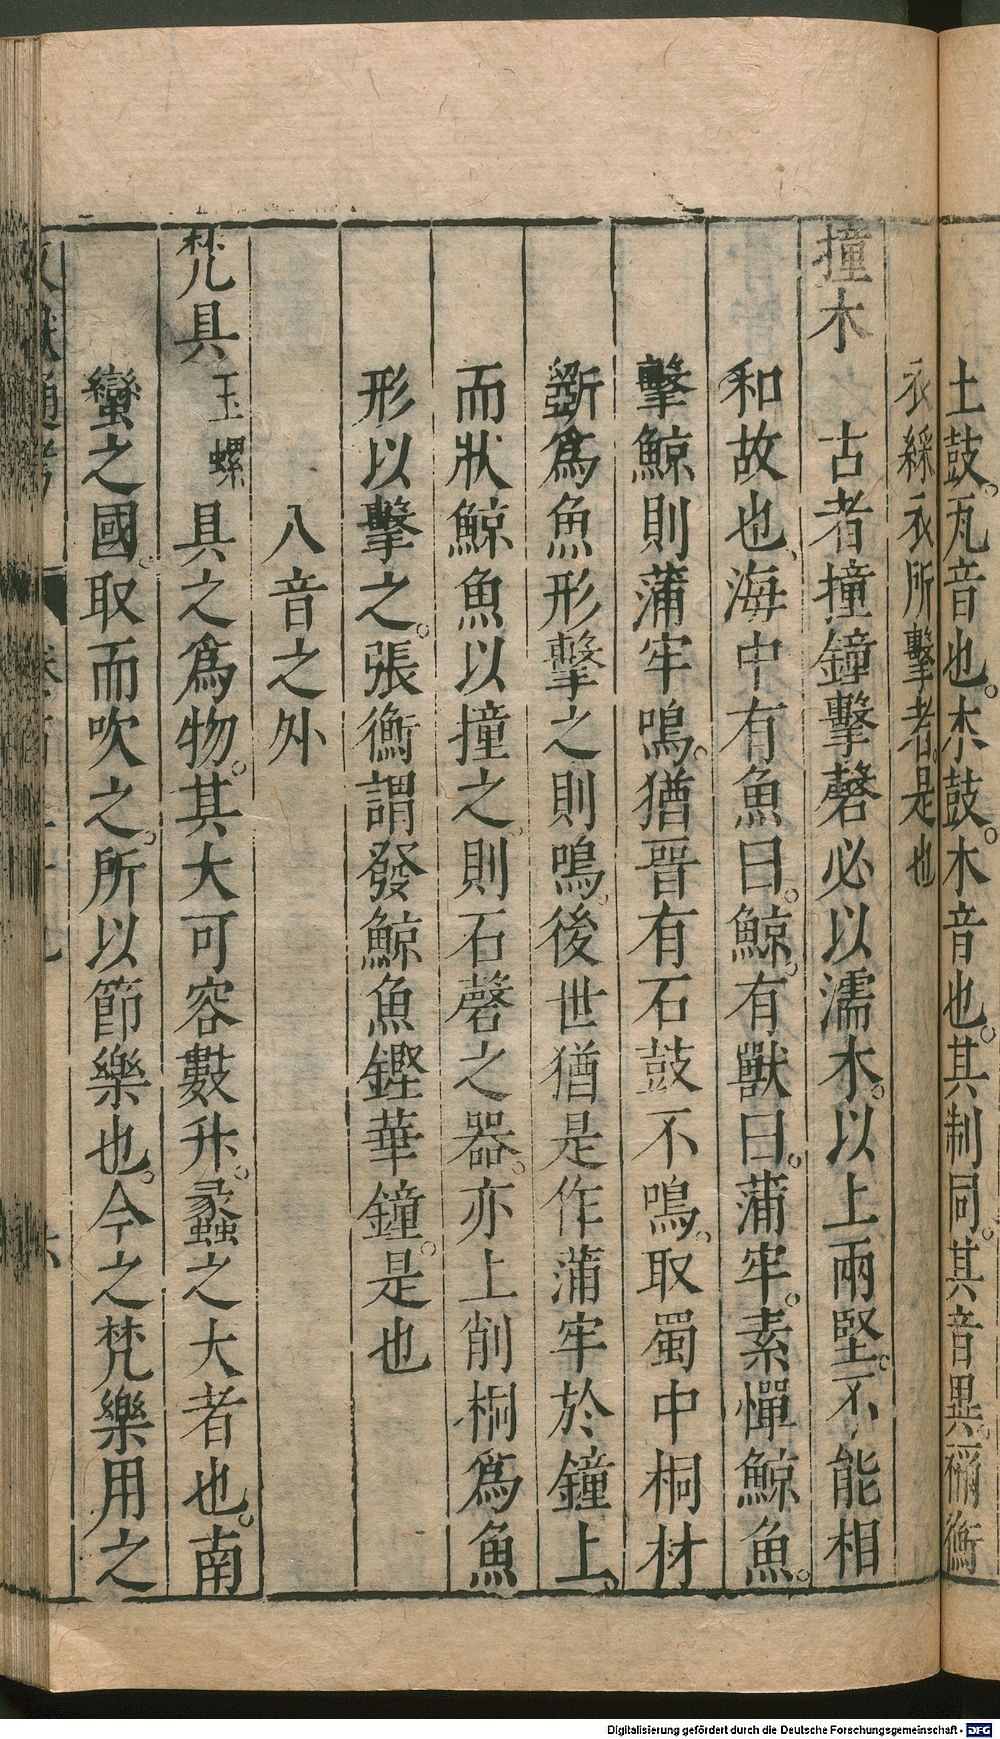 土鼓。瓦音也。木鼓。木音也。其制同。其音異。禰衡
衣綵衣所擊者。是也
撞木
古者撞鐘擊磬必以濡木。以上兩堅。不能相
和故也、海中有魚曰。鯨。有獸曰。蒲牢。素憚鯨魚。
擊鯨則蒲牢鳴。猶晉有石鼓不鳴。取蜀中桐材
斵爲魚形擊之則鳴。後世猶是作蒲牢於鐘上。
而狀鯨魚以撞之。則石磬之器。亦上削桐爲魚
形以擊之。張衡謂發鯨魚鏗華鐘。是也
八音之外
梵具 玉螺 具之爲物。其大可容數升。蠡之大者也。南
蠻之國。取而吹之。所以節樂也。今之梵樂用之
Digitalisierung gefördert durch die Deutsche Forschungsgemeinschaft - DFG